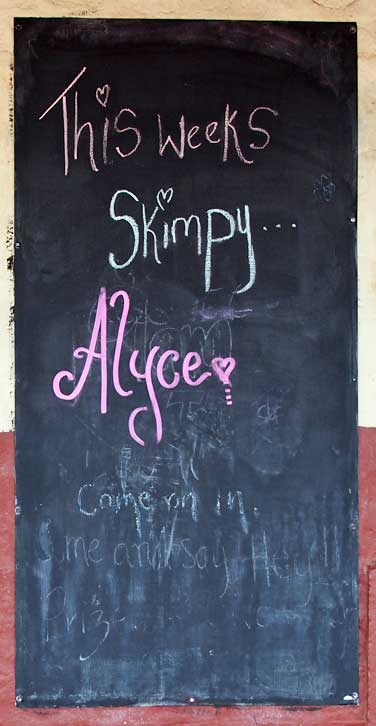 This weeks
Skimpy...
Alyce
Come on in.
Come and say Hey!!